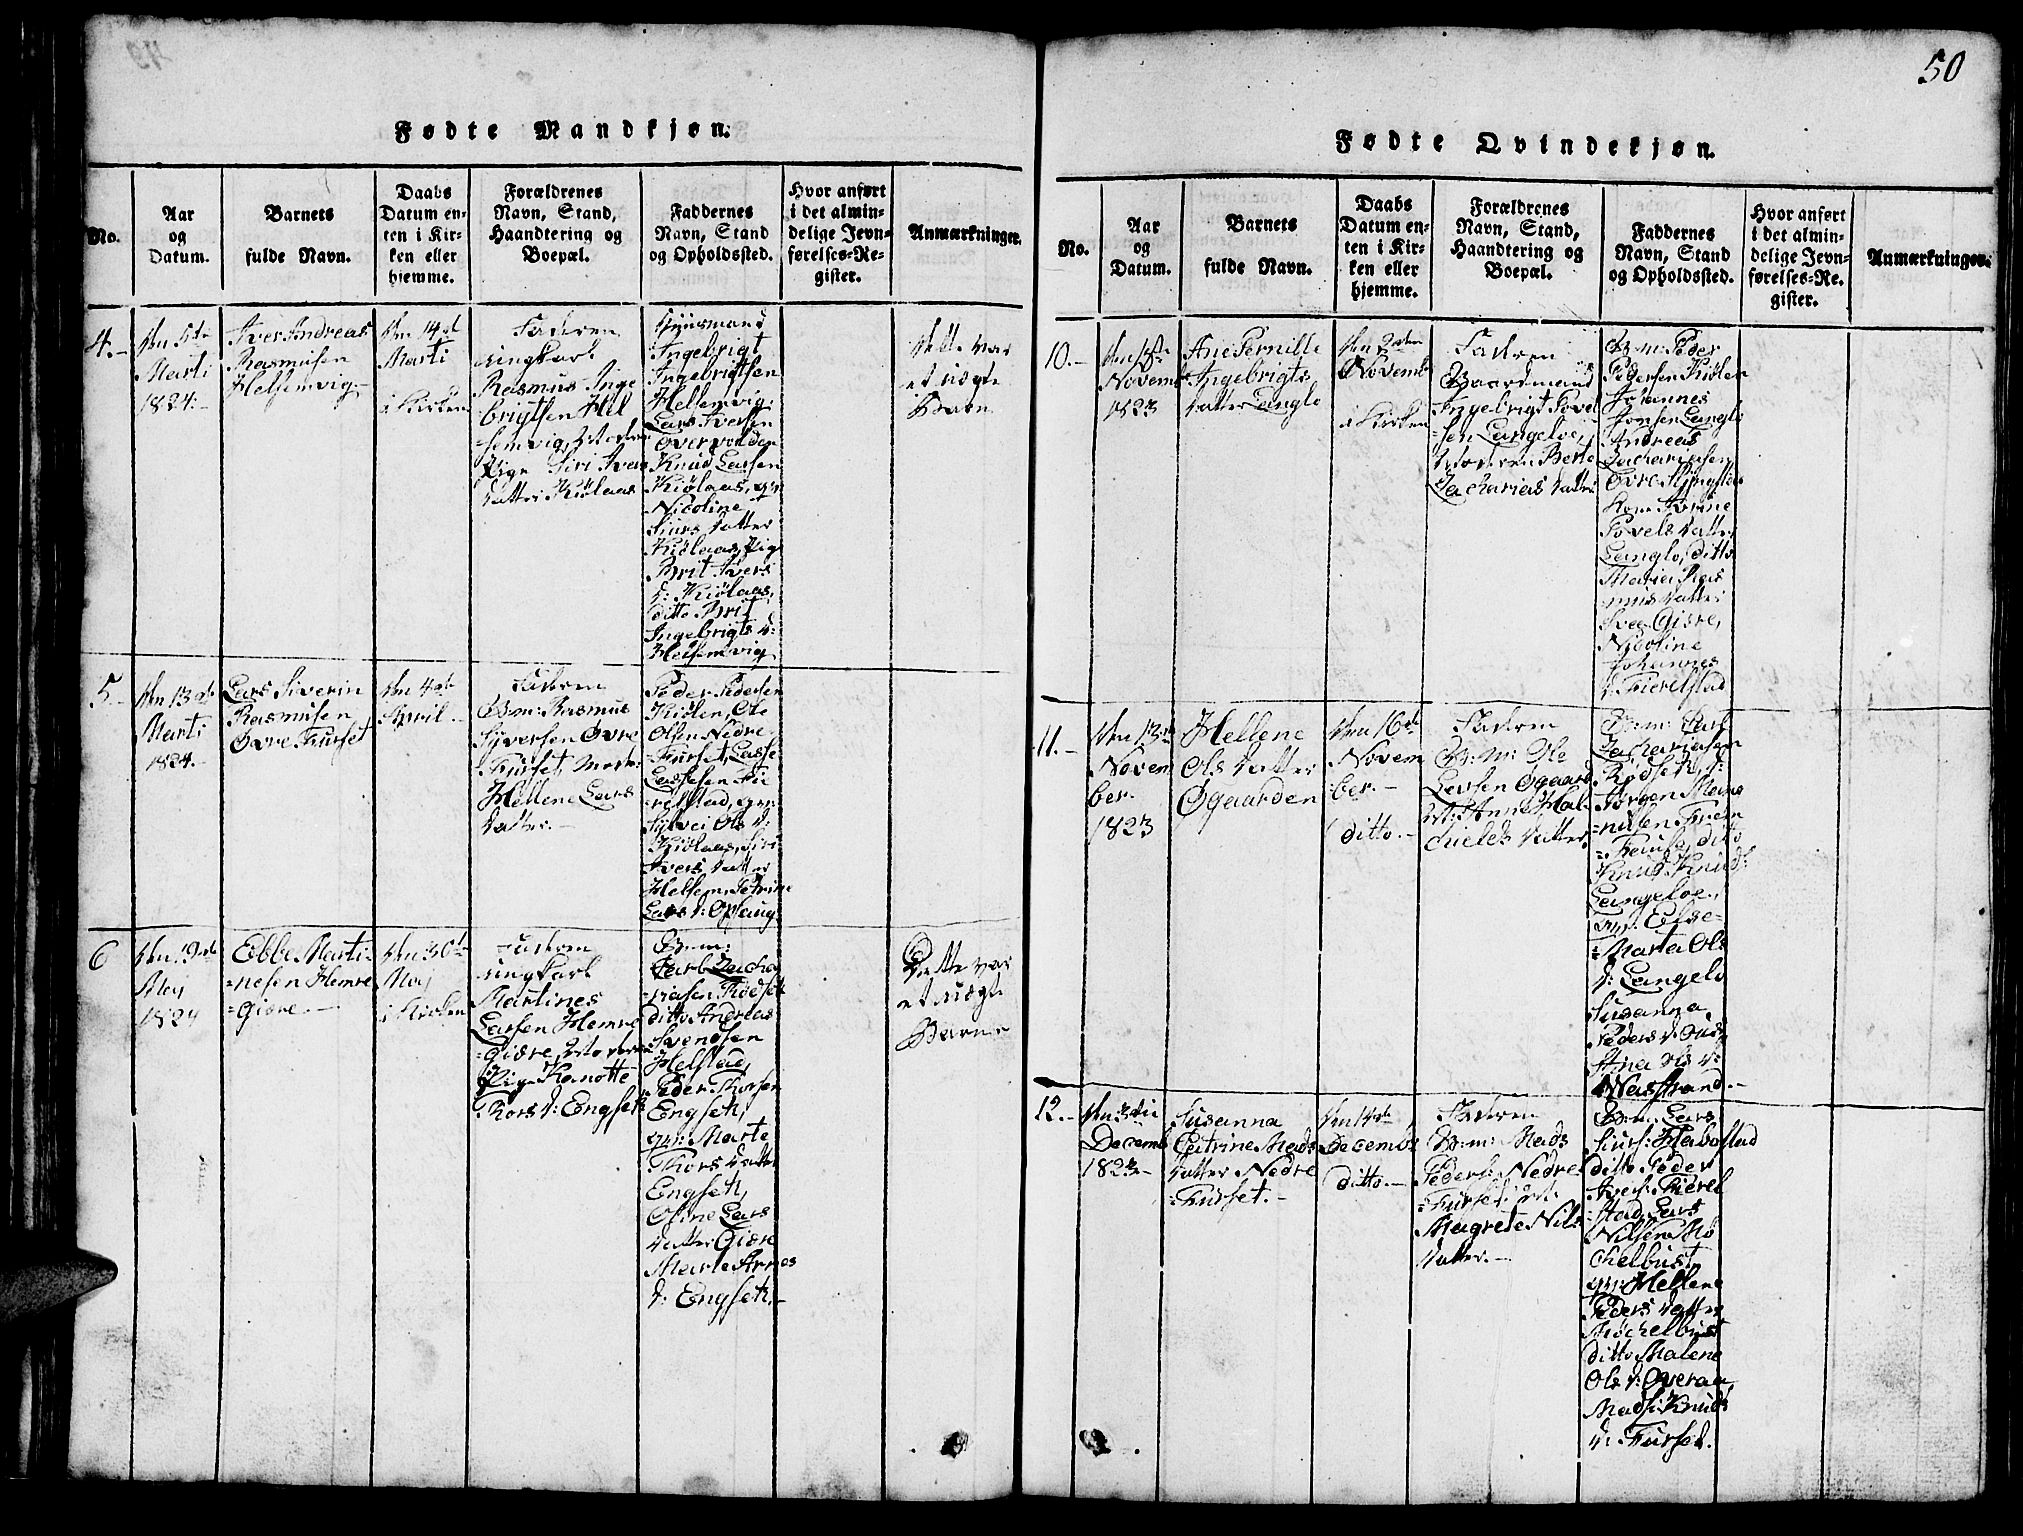 50
Fødte Mandkjøn.
No.
Aar
og
Datum.
Barnets
fulde Navn.
Daabs
Datum en-
ten i Kir-
ken eller
hjemme.
Forældrenes
Navn, Stand,
Haandtering og
Boepæl.
Faddernes
Navn, Stand
og Opholdssted.
Hvor anført
i det almin-
delige Jevn-
førelses-Re-
gister.
Anmærkninger.
4.-
den 5te
Marti
1824.-
Iver Andreas
Rasmusen
Hellemvig.-
den 14de
Marti
i Kirken
Faderen
ungkarl
Rasmus Inge
brigtsen Hel
semvig, Moderen
Pige Siri Ivers
datter Kiølaas
Huusmand
Ingebrigt
Ingebrigtsen
Helsemvig.
Lars Iversen
Overvolden
Knud Larsen
Kiølaas, qv:
Nicoline
Siurs datter
Kiølaas, Pig
Brit Ivers
d: Kiølaas,
ditto Brit
Ingebrigts d:
Helsemvig
Dette var
et uægte
Barn
5.-
den 13de
Marti
1824.-
Lars Siverin
Rasmusen
Øvre Furset
den 4de
April.-
Faderen
G:m: Rasmus
Syversen Øvre
Furset, Mod:
Hellene Lars
datter.-
Peder Pedersen
Kiølen, Ole
Olsen Nedre
Furset, Lasse
Lassesen Fie
relstad, qv:
Sylvei Ols d:
Kiølaas, Siri
Ivers datter
Helsem, Petrine
Lars d: Ophaug
6
den 19de
May
1824
Ebbe Marti-
nesen Hemre
=Giøre.-
den 30te
May
i Kirken
Faderen
ungkarl
Martines
Larsen Hemre
=Giøre, Moderen
Pige Kanotte
Thors d: Engseth
G:m:
Carl Zacha
riasen Rødseth
ditto Andreas
Svendsen
Helstad,
Peder Thorsen
Engseth,
qv: Marte
Thors datter
Engseth,
Oline Lars
datter Giøre
Marte Arnes
d: Engseth.-
Dette var
et uægte
Barn
Fødte Qvindekjøn.
No.
Aar
og
Datum.
Barnets
fulde Navn.
Daabs
Datum en-
ten i Kir-
ken eller
hjemme.
Forældrenes
Navn, Stand,
Haandtering og
Boepæl.
Faddernes
Navn, Stand
og Opholdssted.
Hvor anført
i det almin-
delige Jevn-
førelses-Re-
gister.
Anmærkninger.
10.-
den 1ste
Novemb
1823
Ane Pernille
Ingebrigts
datter Langlo
den 2den
Novemb
i Kirken
Faderen
Gaardmand
Ingebrigt Povel
sen Langeloe,
Moderen Berte
Zacharias datter
G:m: Peder
Pedersen Kiølen
Johannes
Jonsen Langlo
Andreas
Zachariasen
Øvre
Kone Iverine
Povels datter
Langlo, ditto
Maria Ras
mus datter
Giøre,
Nicoline
Johannes
d: Fierelstad
11.-
den 13de
Novem
ber.
1823
Hellene
Ols datter
Øgaarden
den 16de
Novem
ber.-
ditto.-
Faderen
G:m: Ole
Larsen Øgaard
M: Anne Mal-
chiels datter.
G:m: Carl
Zachariasen
Rødseth, d:
Jørgen Magne
=nusen Frem
=House, ditto
Knud Knuds:
Langeloe.
qv: Else=
Marta Ols
d: Langelo
Susanna
Peders d:
Stina Ols d:
Nasstrand.-
12.-
den 3die
Decemb
1823.-
Susanna
Catrine Mads
datter Nedre
=Furset.-
den 14de
Decembr
ditto.-
Faderen
G:m: Mads
Peders: Nedre
=Furset, M:
Magrete Nils
datter.-
G:m: Lars
Siurs: Habostad
ditto Peder
Ivers: Fierel
=stad, Lars
Nilsen Mø
chelbust,
qv: Hellene
Peders datter
Møchelbust
ditto Malene
Ols d: Overaa,
Madsi Knuds
d: Furset.